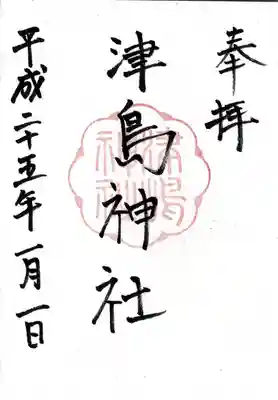 奉拝
津島神社
平成二十五年一月一日
津嶋神社